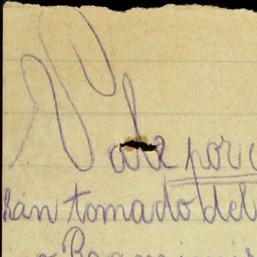 Vale por
han tomado del